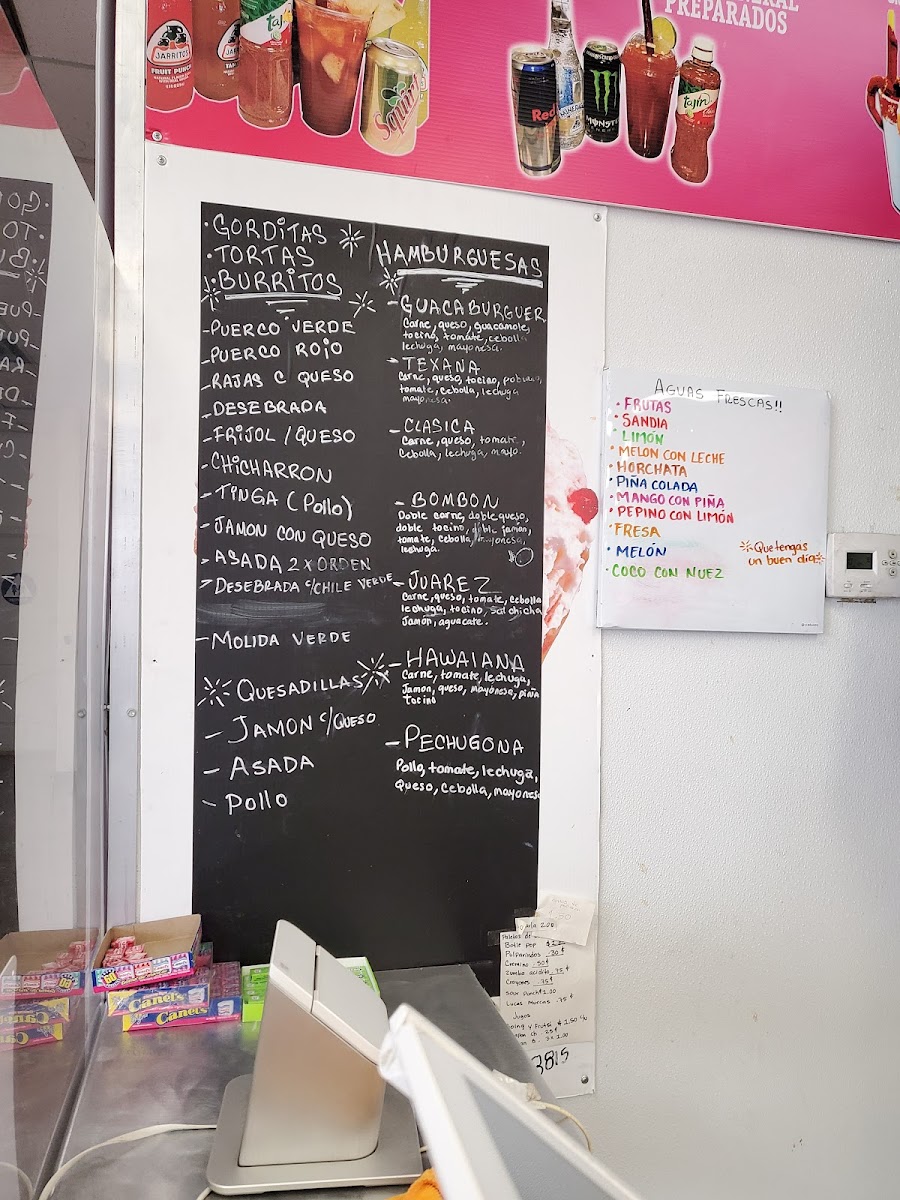 JARRITOS
FRUIT PUNCH
Tajín
Squirt
MINERAL
PREPARADOS
Red
MINERAL
MONSTER
Tajín
· GORDITAS
· TORTAS
· BURRITOS
- PUERCO VERDE
- PUERCO ROJO
- RAJAS C QUESO
- DESEBRADA
- FRIJOL / QUESO
- CHICHARRON
- TINGA (Pollo)
- JAMON CON QUESO
- ASADA 2 x ORDEN
- DESEBRADA C/CHILE VERDE
- MOLIDA VERDE
QUESADILLAS
- JAMON C/QUESO
- ASADA
- POLLO
HAMBURGUESAS
- GUACABURGUER
Carne, queso, guacamole,
tocino, tomate, cebolla
lechuga, mayonesa.
- TEXANA
Carne, queso, tocino, poblano,
tomate, cebolla, lechuga
mayonesa.
- CLASICA
Carne, queso, tomate,
Cebolla, lechuga, mayo.
- BOMBON
Doble carne, doble queso,
doble tocino, doble jamón,
tomate, cebolla, mayonesa,
lechuga.
- JUAREZ
Carne, queso, tomate, cebolla
lechuga, tocino, salchicha
Jamón, aguacate.
- HAWAIANA
Carne, tomate, lechuga,
Jamon, queso, mayonesa, piña
Tocino
- PECHUGONA
Pollo, tomate, lechuga,
Queso, Cebolla, mayonesa
AGUAS FRESCAS!!
· FRUTAS
· SANDIA
· LIMÓN
· MELON CON LECHE
· HORCHATA
· PIÑA COLADA
· MANGO CON PIÑA
· PEPINO CON LIMÓN
· FRESA
· MELÓN
· COCO CON NUEZ
Que tengas
un buen día
Canel's
Canel's
Paletas de
Pulparindos .30¢
.50¢
Zumba acidita .75¢
Crayones .75¢
Sour Punch $1.00
Lucas Muecas .75¢
Jugos
Boing y Frutsi $1.50 c/u
3815